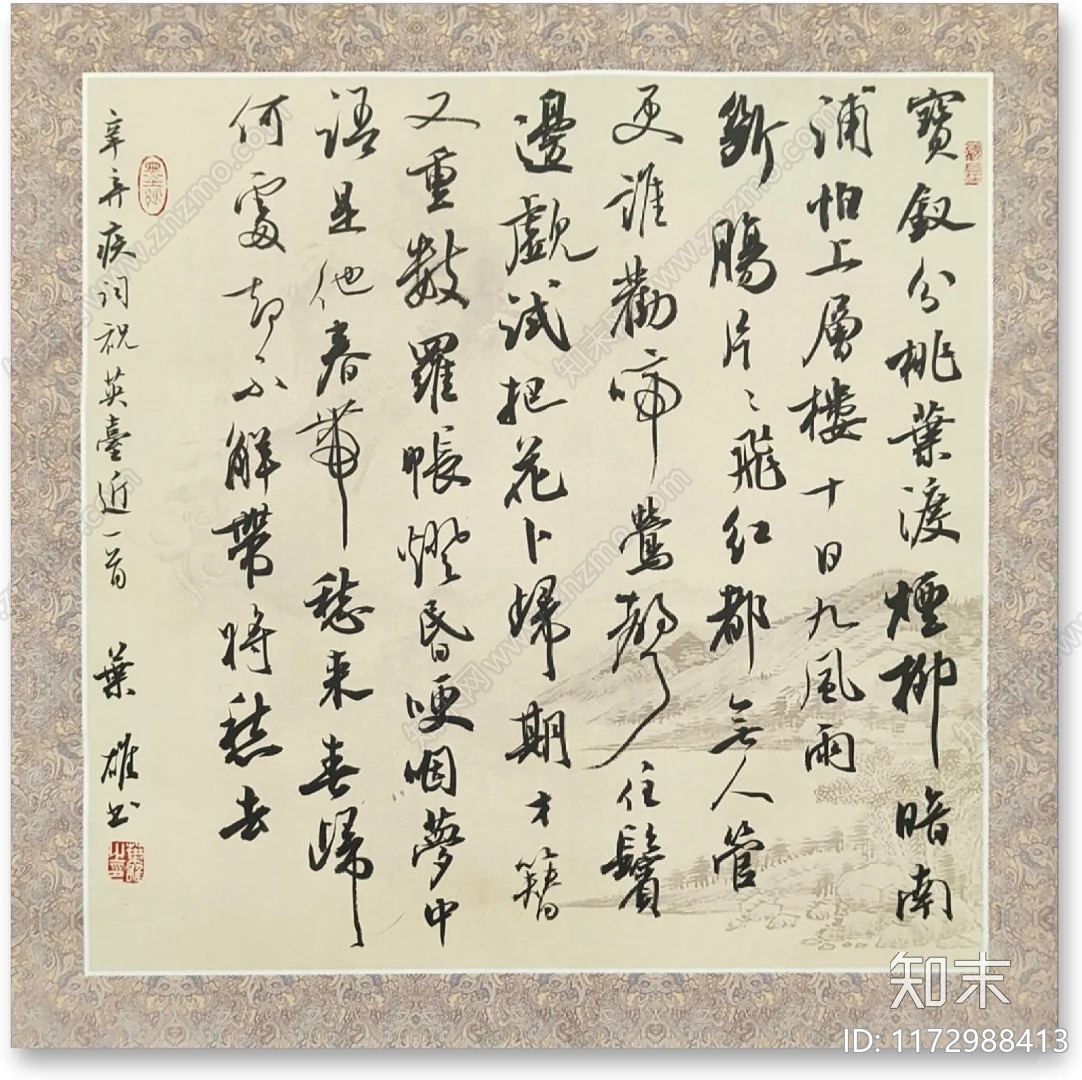 寶釵分桃葉渡煙柳暗南
浦怕上層樓十日九風雨
斷腸片〻飛紅都无人管
更誰勸啼鶯聲住鬢
邊覷試把花卜歸期才簪
又重數羅帳燈昏哽咽夢中
語是他春帶愁来春歸
何處却不解帶將愁去
辛弃疾词祝英臺近一首 葉雄书
知末网www.znzmo.com
知末
ID: 1172988413